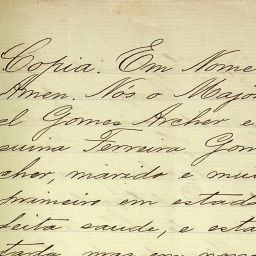 Copia. Em Nome
Amen. Nós o Major
el Gomes Archer e
suina Ferreira Gom
cher, marido e mul
primeiro em estado
feita saude, e esta
tada, mas em